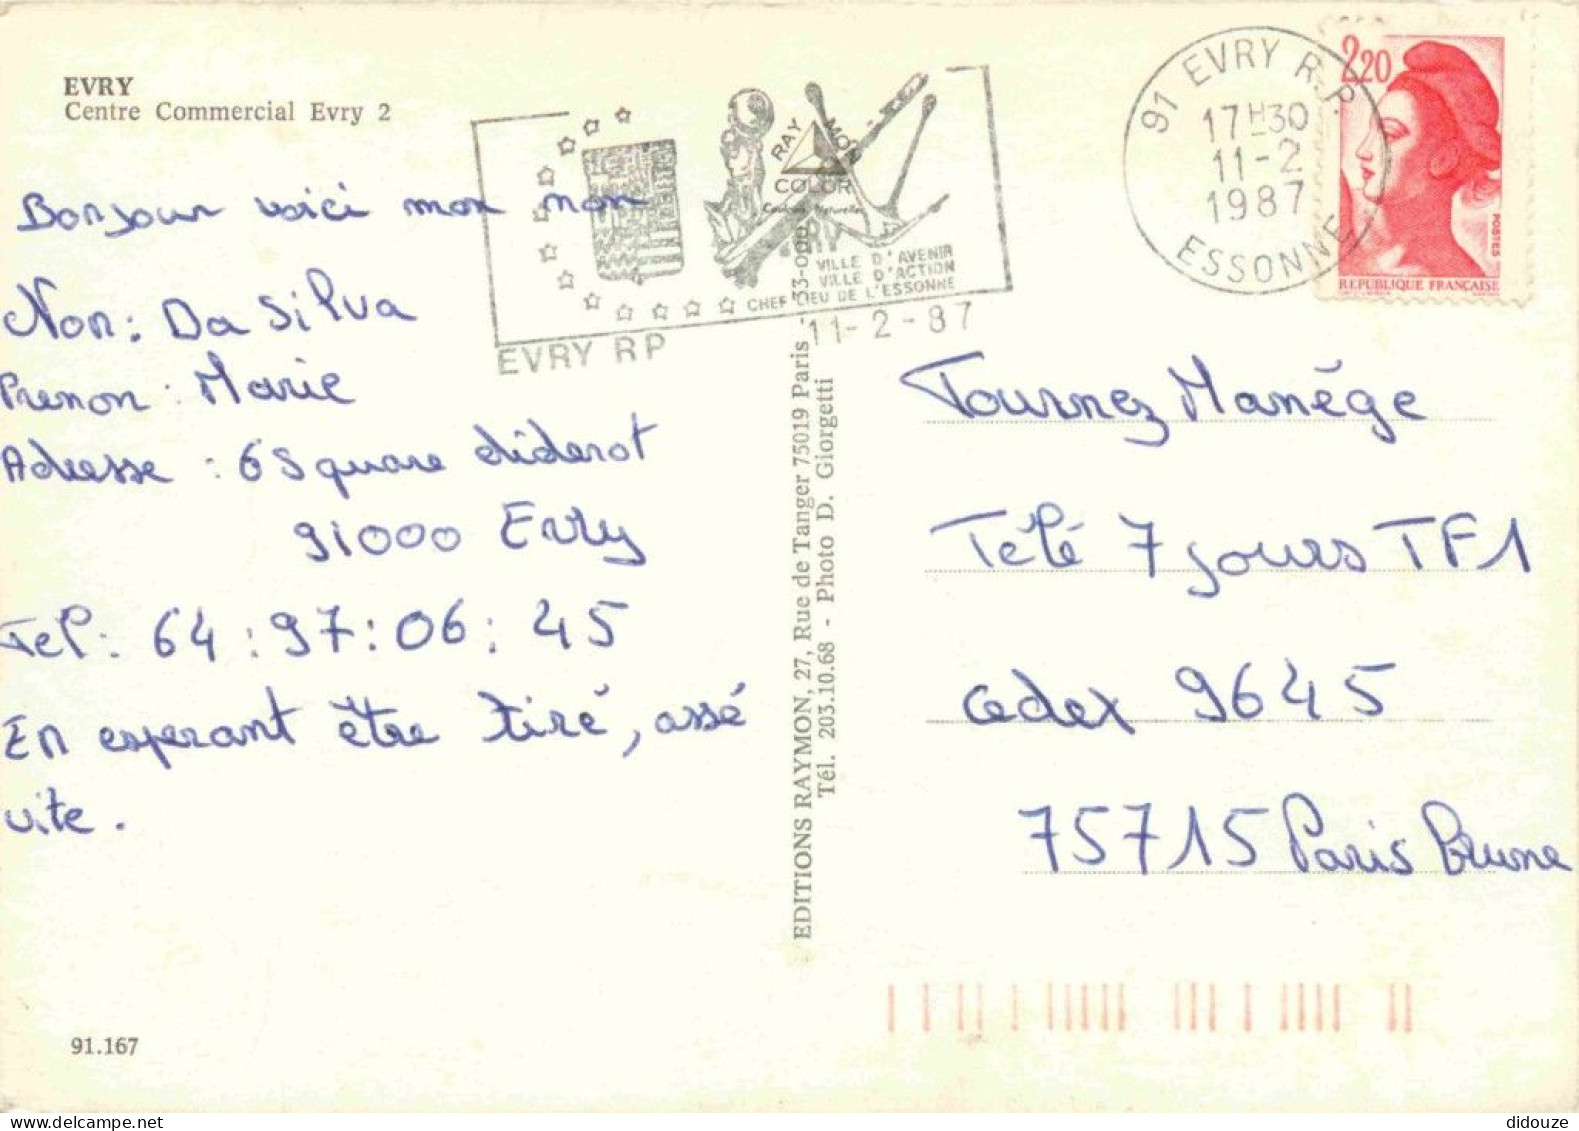 EVRY
Centre Commercial Evry 2
Bonjour voici mon non
Non: Da Silva
Prenon: Marie
Adresse: 6 Square diderot
91000 Evry
Tel: 64:97:06:45
En esperant être tiré, assé
vite.
91.167
RAYMON
COLOR
VILLE D'AVENIR
VILLE D'ACTION
CHEF LIEU DE L'ESSONNE
EVRY RP
11-2-87
EDITIONS RAYMON, 27, Rue de Tanger 75019 Paris
Tél. 203.10.68 - Photo D. Giorgetti
91 EVRY R.P.
17H30
11-2
1987
ESSONNE
2,20
POSTES
REPUBLIQUE FRANÇAISE
Tournez Manège
Télé 7 jours TF1
cedex 9645
75715 Paris Brune
didouze